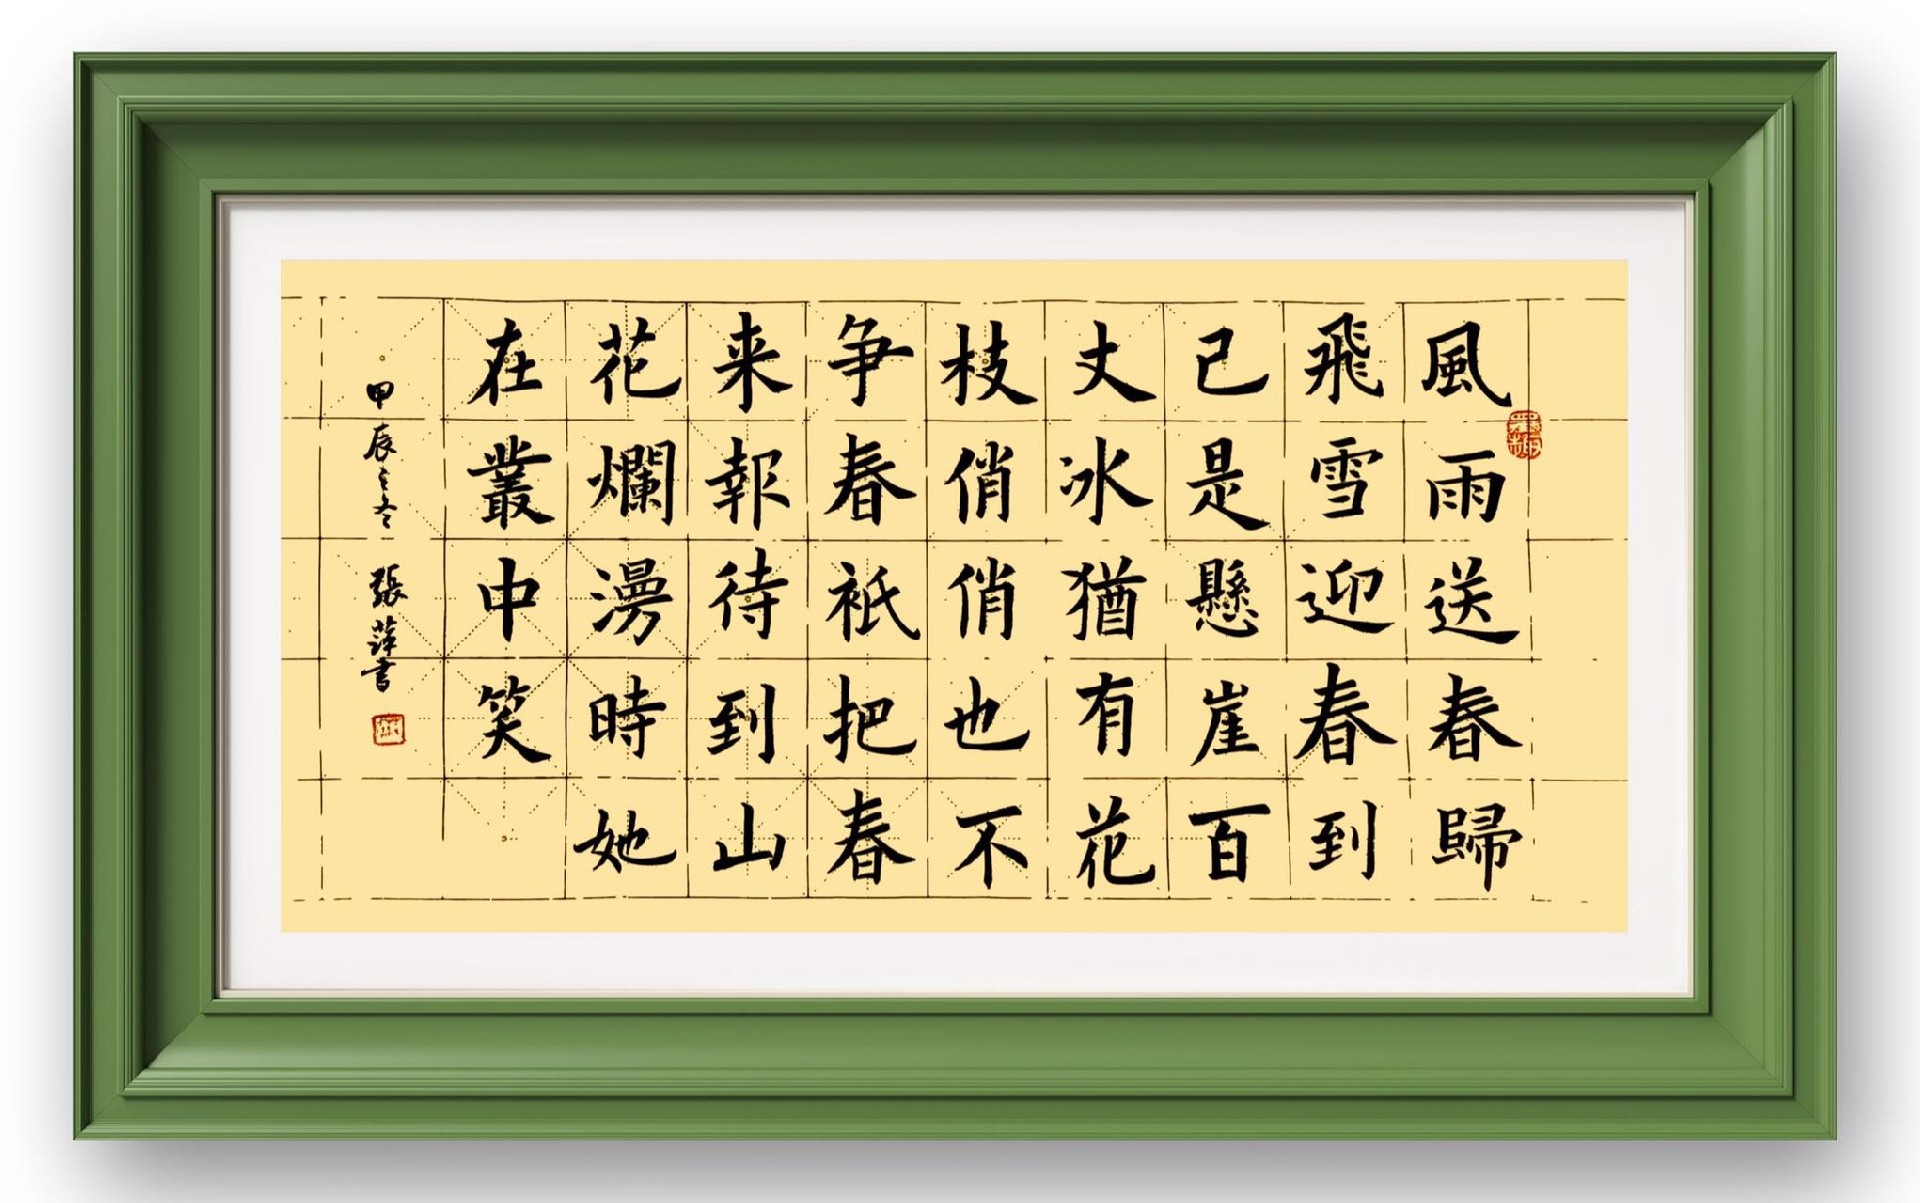 風雨送春歸
飛雪迎春到
已是懸崖百
丈冰猶有花
枝俏俏也不
争春衹把春
来報待到山
花爛漫時她
在叢中笑
甲辰之冬
張萍書